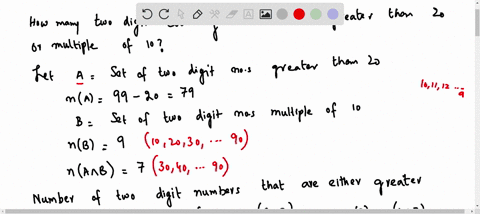 How many two digit greater than 20
or multiple of 10?
Let A = Set of two digit no.s greater than 20
n(A) = 99 - 20 = 79
10, 11, 12 ... 9
B = Set of two digit nos multiple of 10
n(B) = 9 (10, 20, 30, ... 90)
n(A∩B) = 7 (30, 40, ... 90)
Number of two digit numbers that are either greater